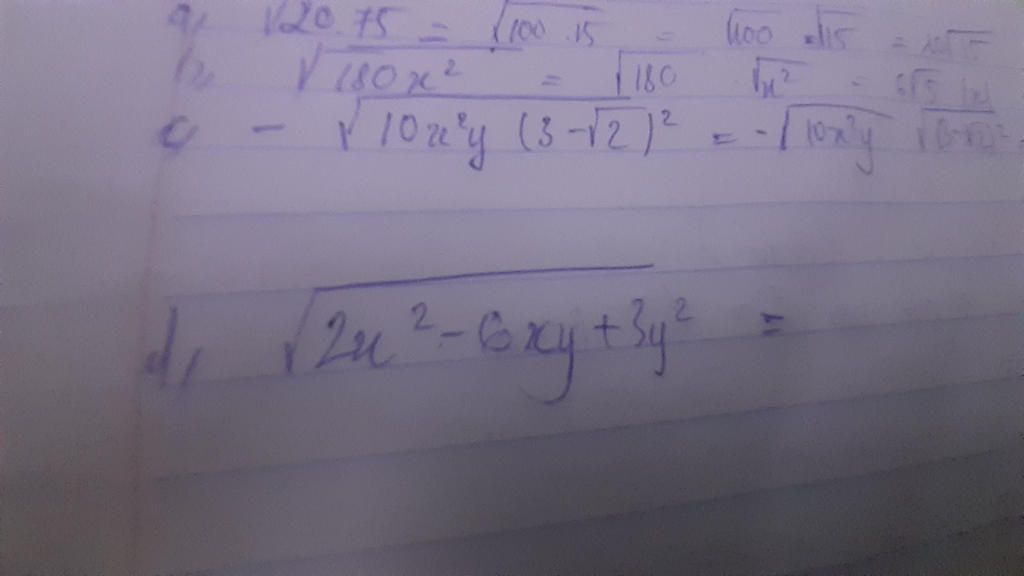 a, √20.75 = √100.15 = √100 . √15 = 10√15
b, √180x² = √180 √x² = 6√5 |x|
c, - √10x²y (3-√2)² = -√10x²y √(3-√2)² =
d, √2x²-6xy+3y² =